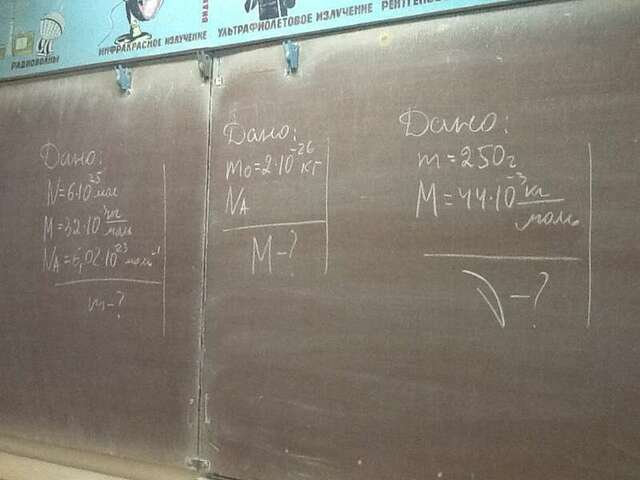 РАДИОВОЛНЫ
ИНФРАКРАСНОЕ ИЗЛУЧЕНИЕ
УЛЬТРАФИОЛЕТОВОЕ ИЗЛУЧЕНИЕ
Дано:
N=6·10²⁵ мол
M=32·10⁻³ кг/моль
N_A=6,02·10²³ моль⁻¹
m-?
Дано:
m₀=2·10⁻²⁶ кг
N_A
M-?
Дано:
m=250г
M=44·10⁻³ кг/моль
ν-?